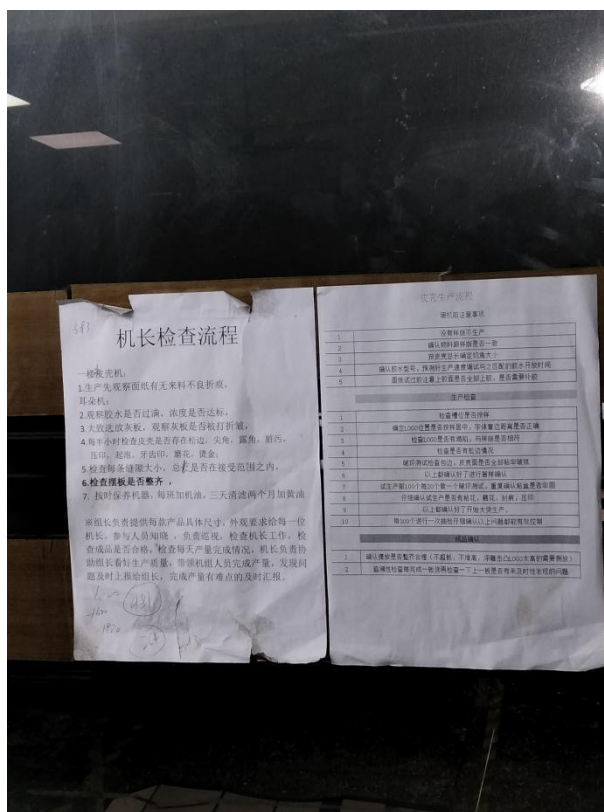 383
机长检查流程
一楼皮壳机:
1.生产先观察面纸有无来料不良折痕,
耳朵机:
2.观察胶水是否过满,浓度是否达标,
3.大致选放灰板,观察灰板是否棱打折皱,
4.每半小时检查皮类是否存在松边,尖角,露角,脏污,
压印,起泡,牙齿印,磨花,烫金;
5.检查每条缝隙大小,总长是否在接受范围之内,
6.检查摆板是否整齐,
7.按时保养机器,每班加机油,三天清滤两个月加黄油
班组长负责提供每款产品具体尺寸,外观要求给每一位
机长,参与人员知晓,负责巡视,检查机长工作,检
查成品是否合格,检查每天产量完成情况,机长负责协
助组长看好生产质量,带领机组人员完成产量,发现问
题及时上报给组长,完成产量有难点的及时汇报。
皮壳生产流程
调机前注意事项
1 没有样版不生产
2 确认物料跟样版是否一致
3 预皮壳总长确定切角大小
4 确认胶水型号,预测好生产速度调试与之匹配的胶水开放时间
5 面纸试过胶注意上胶面是否全部上胶,是否需要补胶
生产检查
1 检查槽位是否按样
2 确定LOGO位置是否按样居中,字体靠边距离是否正确
3 检查LOGO是否有塌陷,与样版是否相符
4 检查是否有松边情况
5 破坏测试检查包边,皮壳面是否全部粘牢破纸
6 以上都确认好了进行首样确认
7 试生产前100个每20个做一个破坏测试,重复确认粘盒是否牢固
8 仔细确认试生产是否有粘花,磨花,刮痕,压印
9 以上都确认好了开始大货生产。
10 每300个进行一次抽检仔细确认以上问题都能有效控制
成品确认
1
2